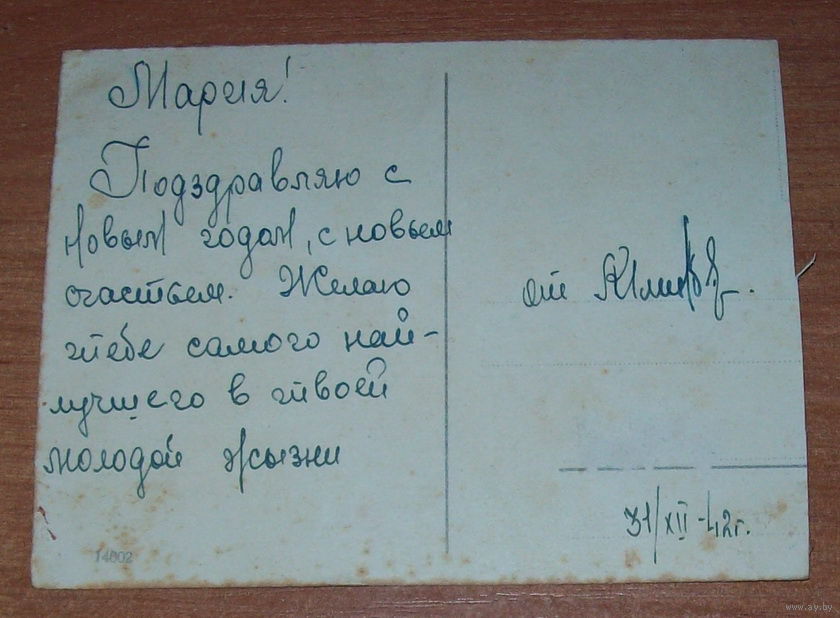 Мария!
Подздравляю с
новым годом, с новым
счастьем. Желаю
тебе самого най-
лучшего в твоей
молодой жызни
от
31/XII-42г.
14602
www.ay.by